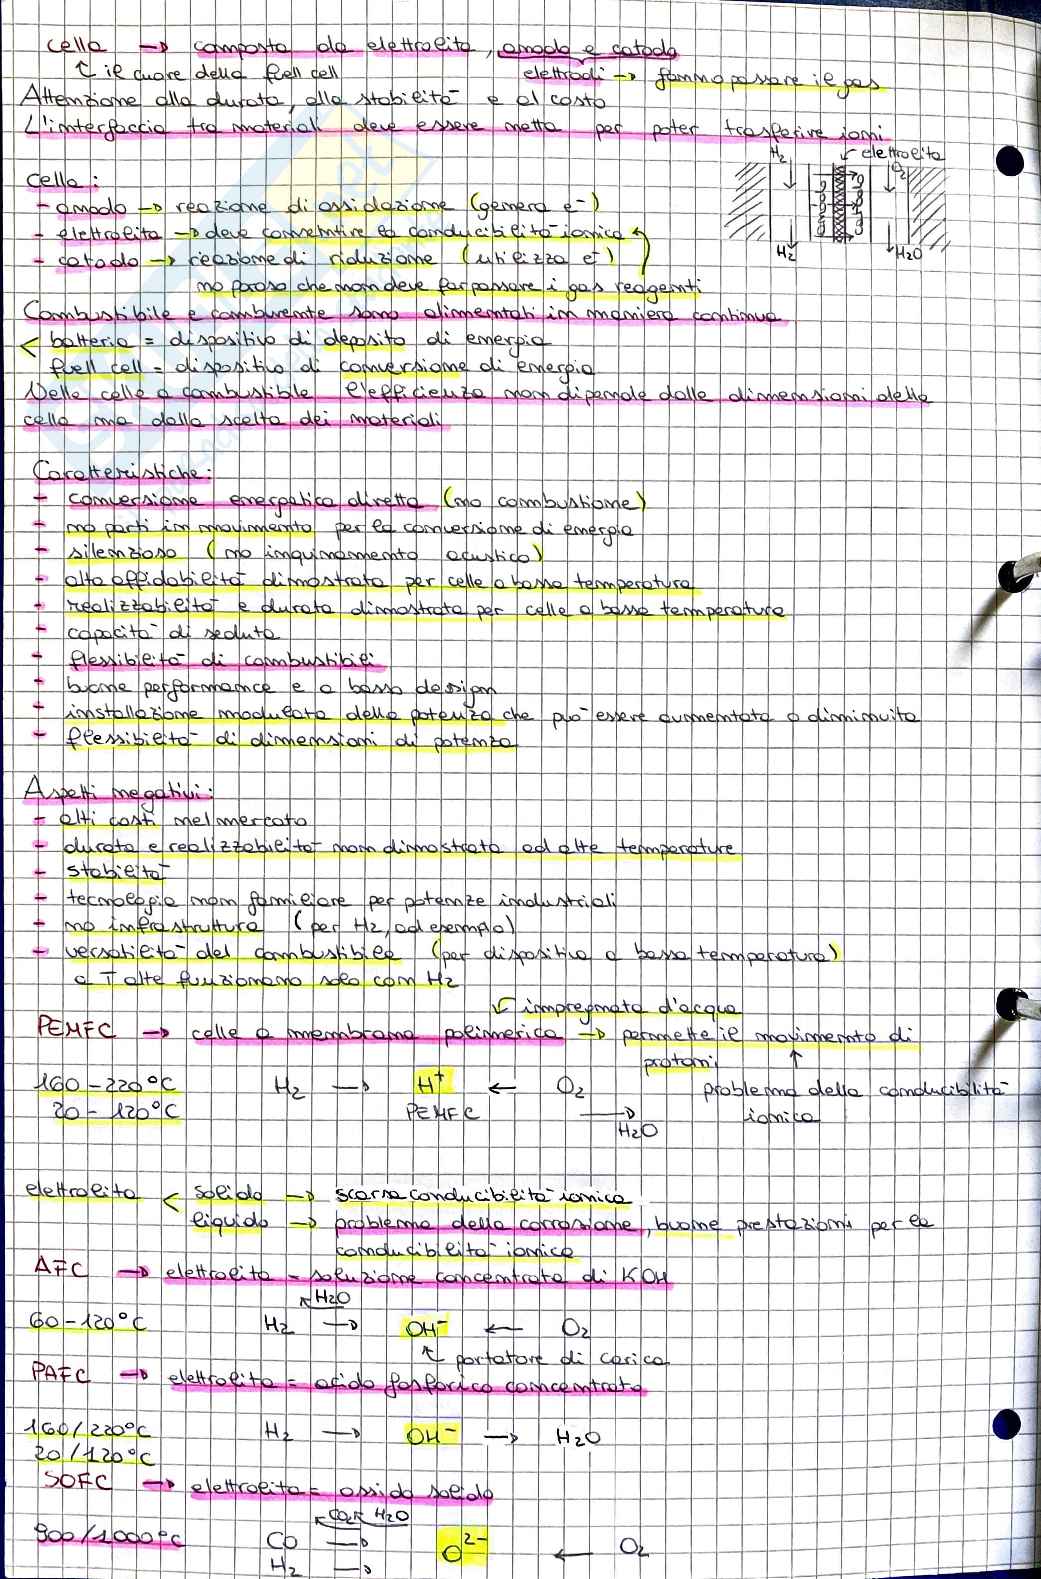 cella → composta da elettrolita, anodo e catodo
↑ il cuore della fuell cell elettrodi → fanno passare il gas
Attenzione alla durata, alla stabilità e al costo
L'interfaccia tra materiali deve essere netta per poter trasferire ioni
H2 elettrolita O2
cella:
- anodo → reazione di ossidazione (genera e-)
- elettrolita → deve consentire la conducibilità ionica
- catodo → reazione di riduzione (utilizza e-)
H2 H2O
no poroso che non deve far passare i gas reagenti
Combustibile e comburente sono alimentati in maniera continua
< batteria = dispositivo di deposito di energia
fuell cell = dispositivo di conversione di energia
Nelle celle a combustibile l'efficienza non dipende dalle dimensioni della
cella ma dalla scelta dei materiali
Caratteristiche:
- conversione energetica diretta (no combustione)
- no parti in movimento per la conversione di energia
- silenzioso (no inquinamento acustico)
- alta affidabilità dimostrata per celle a bassa temperatura
- realizzabilità e durata dimostrata per celle a bassa temperatura
- capacità di seduta
- flessibilità di combustibili
- buone performance e a basso design
- installazione modulata della potenza che può essere aumentata o diminuita
- flessibilità di dimensioni di potenza
Aspetti negativi:
- alti costi nel mercato
- durata e realizzabilità non dimostrata ad alte temperature
- stabilità
- tecnologia non familiare per potenze industriali
- no infrastruttura (per H2, ad esempio)
- versatilità del combustibile (per dispositivo a bassa temperatura)
a T alte funzionano solo con H2
impregnata d'acqua
PEMFC → celle a membrana polimerica → permette il movimento di
protoni
160-220°C H2 → H+ ← O2 problema della conducibilità
20-120°C PEMFC → H2O ionica
elettrolita < solido → scarsa conducibilità ionica
liquido → problema della corrosione, buone prestazioni per la
conducibilità ionica
AFC → elettrolita = soluzione concentrata di KOH
H2O
60-120°C H2 → OH- ← O2
portatore di carica
PAFC → elettrolita = acido fosforico concentrato
160/220°C H2 → OH- → H2O
20/120°C
SOFC → elettrolita = ossido solido
CO2 H2O
900/1000°C CO → O2- ← O2
H2 →